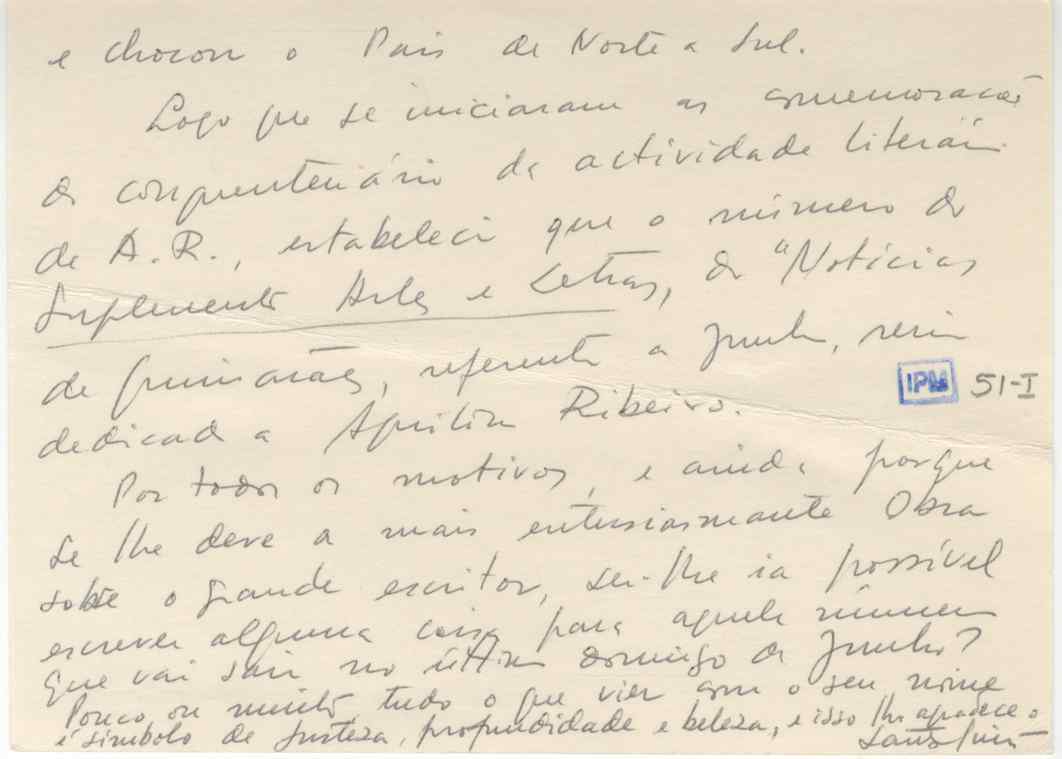 e chocou o País de Norte a Sul.
Logo que se iniciaram as comemorações
do cinquentenário da actividade literária
de A.R., estabeleci que o número do
Suplemento Artes e Letras, do "Notícias
de Guimarães, referente a Junho, seria
IPM 51-I
dedicado a Aquilino Ribeiro.
Por todos os motivos, e ainda porque
se lhe deve a mais entusiasmante Obra
sobre o grande escritor, ser-lhe ia possível
escrever alguma coisa para aquele número
que vai sair no último domingo de Junho?
Pouco ou muito tudo o que vier com o seu nome
é símbolo de justeza, profundidade e beleza, e isso lhe agradece o